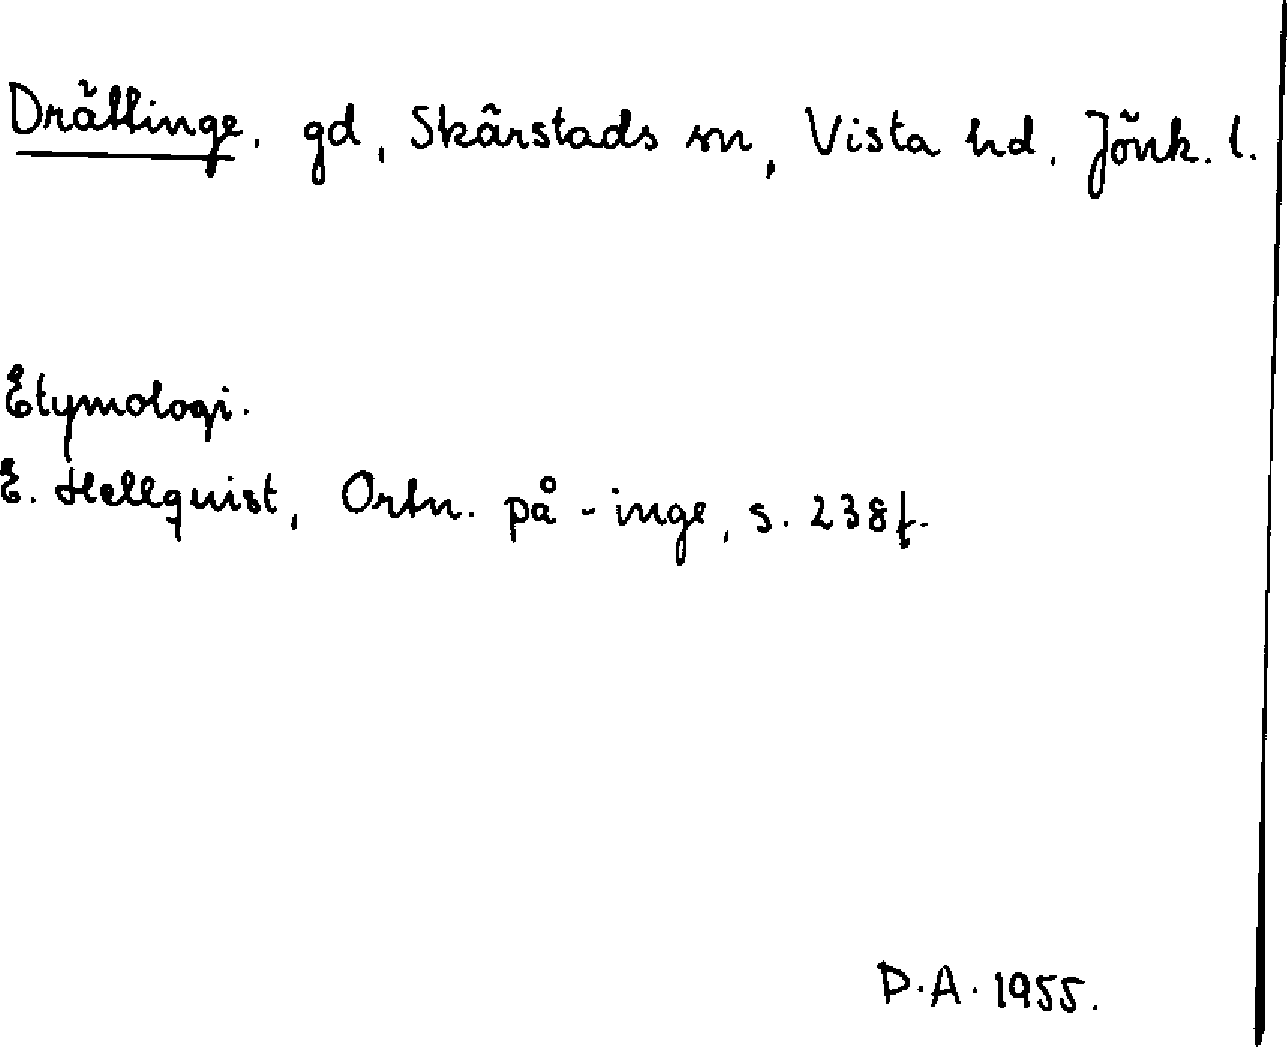 Drättinge, gd, Skärstads sn, Vista hd, Jönk. l.
Etymologi.
E. Hellquist, Ortn. på -inge, s. 238f.
D.A. 1955.